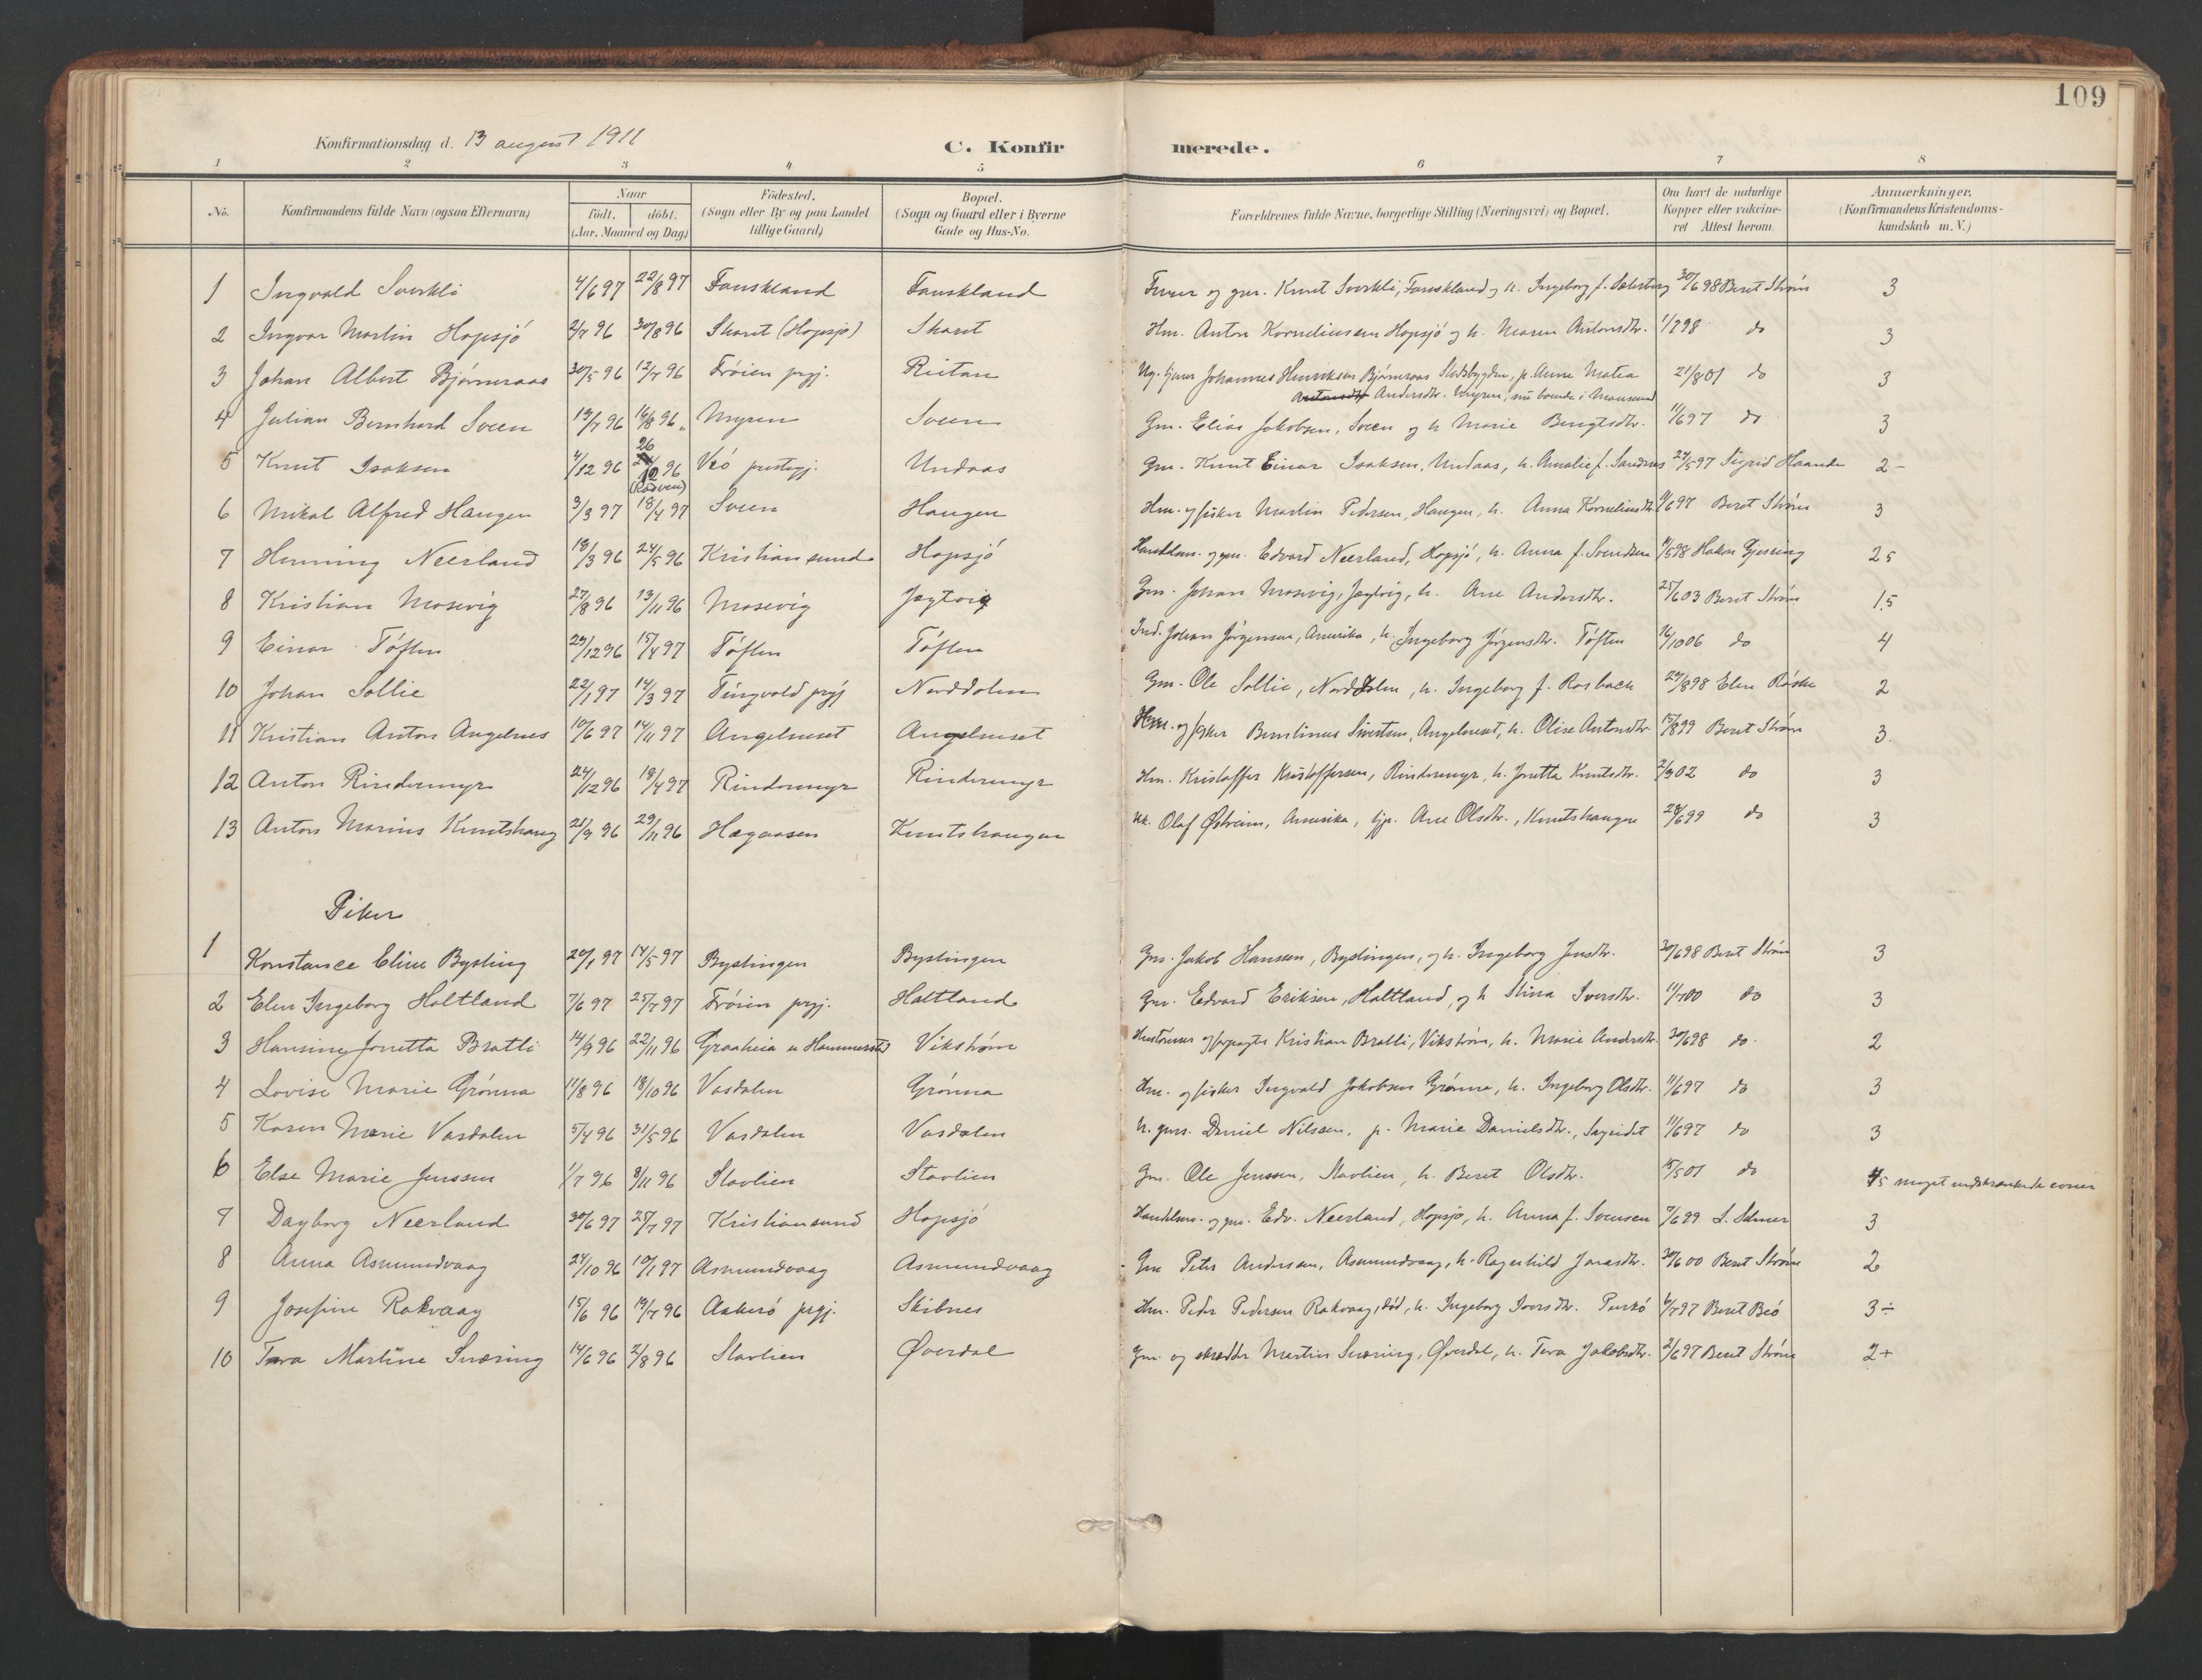 109
Konfirmationsdag d. 13 august 1911
C. Konfirmerede.
1 2 3 4 5 6 7 8
No. Konfirmandens fulde Navn (ogsaa Efternavn) Naar født. døbt. (Aar, Maaned og Dag) Födested. (Sogn eller By og paa Landet tillige Gaard) Bopæl. (Sogn og Gaard eller i Byerne Gade og Hus-No. Forældrenes fulde Navne, borgerlige Stilling (Næringsvei) og Bopæl. Om havt de naturlige Kopper eller vakcineret Attest herom. Anmærkninger. (Konfirmandens Kristendomskundskab m. V.)
1 Ingvald Sverkli 4/6 97 22/8 97 Fauskland Fauskland og gm. Knut Sverkli, Fauskland og h. Ingeborg f. 30/6 98 Beret Strøm 3
2 Ingvar Martin Hopsjö 2/7 96 30/8 96 Skaret (Hopsjö) Skaret Hm. Anton Korneliussen Hopsjö og h. Maren Antonsdtr. 1/7 98 do 3
3 Johan Albert Björneraas 30/5 96 12/7 96 Fröien prgj. Riitan Ug. Johannes Henriksen Björneraas Stadsbygden, p. Anne Matea 21/8 01 do 3
Andersdtr. Myren, nu boende i Mausund
4 Julian Bernhard Sveen 13/7 96 16/8 96 Myren Sveen Gm. Elias Jakobsen, Sveen og h Marie Bengtsdtr. 11/6 97 do 3
5 Knut Isaksen 4/12 96 26/12 96 (Rödven) Veö prestegj. Undaas Gm. Knut Einar Isaksen, Undaas, h. Amalie f. Sandnes 24/5 97 Sigrid Haande 2-
6 Mikal Alfred Haugen 3/3 97 18/4 97 Sveen Haugen Hm. og fisker Martin Pedersen, Haugen, h. Anna Korneliusdtr. 11/6 97 Beret Strøm 3
7 Henning Neerland 18/3 96 24/5 96 Kristiansund Hopsjö Handelsm. og gm. Edvard Neerland, Hopsjö, h. Anna f. Svendsen 11/5 98 Hakon Gjessing 2 5
8 Kristian Mosevig 27/8 96 13/11 96 Mosevig Jægtvig Gm. Johan Mosevig, Jægtvig, h. Ane Andersdtr. 25/6 03 Beret Strøm 1,5
9 Einar Töften 29/12 96 15/4 97 Töften Töften Ind. Johan Jörgensen, Amerika, h. Ingeborg Jörgensdtr. Töften 16/10 06 do 4
10 Johan Sollie 22/1 97 14/3 97 Tingvold prgj Norddolmen Gm. Ole Sollie, Norddolm, h. Ingeborg f. Rosbach 29/8 98 Elen Röske 2
11 Kristian Anton Angelnes 10/6 97 14/11 97 Angelneset Angelneset Hm. og fisker Berntinus Sivertsen, Angelneset, h. Olise Antonsdtr. 15/8 99 Beret Strøm 3.
12 Anton Rindermyr 24/12 96 18/4 97 Rindermyr Rindermyr Hm. Kristoffer Kristoffersen, Rindermyr, h. Jonetta Knutsdtr. 2/9 02 do 3
13 Anton Marius Knutshaug 21/9 96 29/11 96 Hægaasen Knutshaugen Olaf Östreim, Amerika, Ane Olsdtr., Knutshaugen 28/6 99 do 3
Piker
1 Konstance Eline Bysting 20/1 97 14/5 97 Bystingen Bystingen Gm. Jakob Hanssen, Bystingen, og h. Ingeborg Jensdtr. 30/6 98 Beret Strøm 3
2 Elen Ingeborg Holtland 7/6 97 25/7 97 Fröien prgj. Holtland Gm. Edvard Eriksen, Holtland, og h Stina Iversdtr. 11/7 00 do 3
3 Hansine Jonetta Bratli 14/9 96 22/11 96 Graaheia u Hammerstad Vikström og Kristian Bratli, Vikström, h. Marie Andersdtr. 30/6 98 do. 2
4 Lovise Marie Grönna 11/8 96 18/10 96 Vasdalen Grönna Hm. og fisker Ingvald Jakobsen Grönna, h. Ingeborg Olsdtr. 11/6 97 do 3
5 Karen Marie Vasdalen 5/4 96 31/5 96 Vasdalen Vasdalen Daniel Nilssen, p. Marie Danielsdtr., 11/6 97 do 3
6 Else Marie Jenssen 1/7 96 8/11 96 Slavlien Stavlien Gm. Ole Jenssen, Stavlien, h. Beret Olsdtr. 15/5 01 do 4 5 meget indskrænkede evner
7 Dagborg Neerland 30/6 97 25/7 97 Kristiansund Hopsjö Handelsm. og gm. Edv. Neerland, Hopsjö, h. Anna f. Svensen 7/6 99 3
8 Anna Asmundvaag 24/10 96 10/1 97 Asmundvaag Asmundvaag Gm Peter Andersen, Asmundvaag, h. Ragnhild Jonasdtr. 30/6 00 Beret Strøm 2
9 Josefine Rakvaag 15/6 96 19/7 96 Aakerö prgj. Skibnes Hm. Peder Pedersen Rakvaag, död, h. Ingeborg Iversdtr. 6/7 97 Beret Beö 3÷
10 Tora Martine Snæring 14/6 96 2/8 96 Slavlien Øverdal Gm. og skrædder Martin Snæring, Øverdal, h. Tora Jakobsdtr. 2/6 97 Beret Strøm 2+